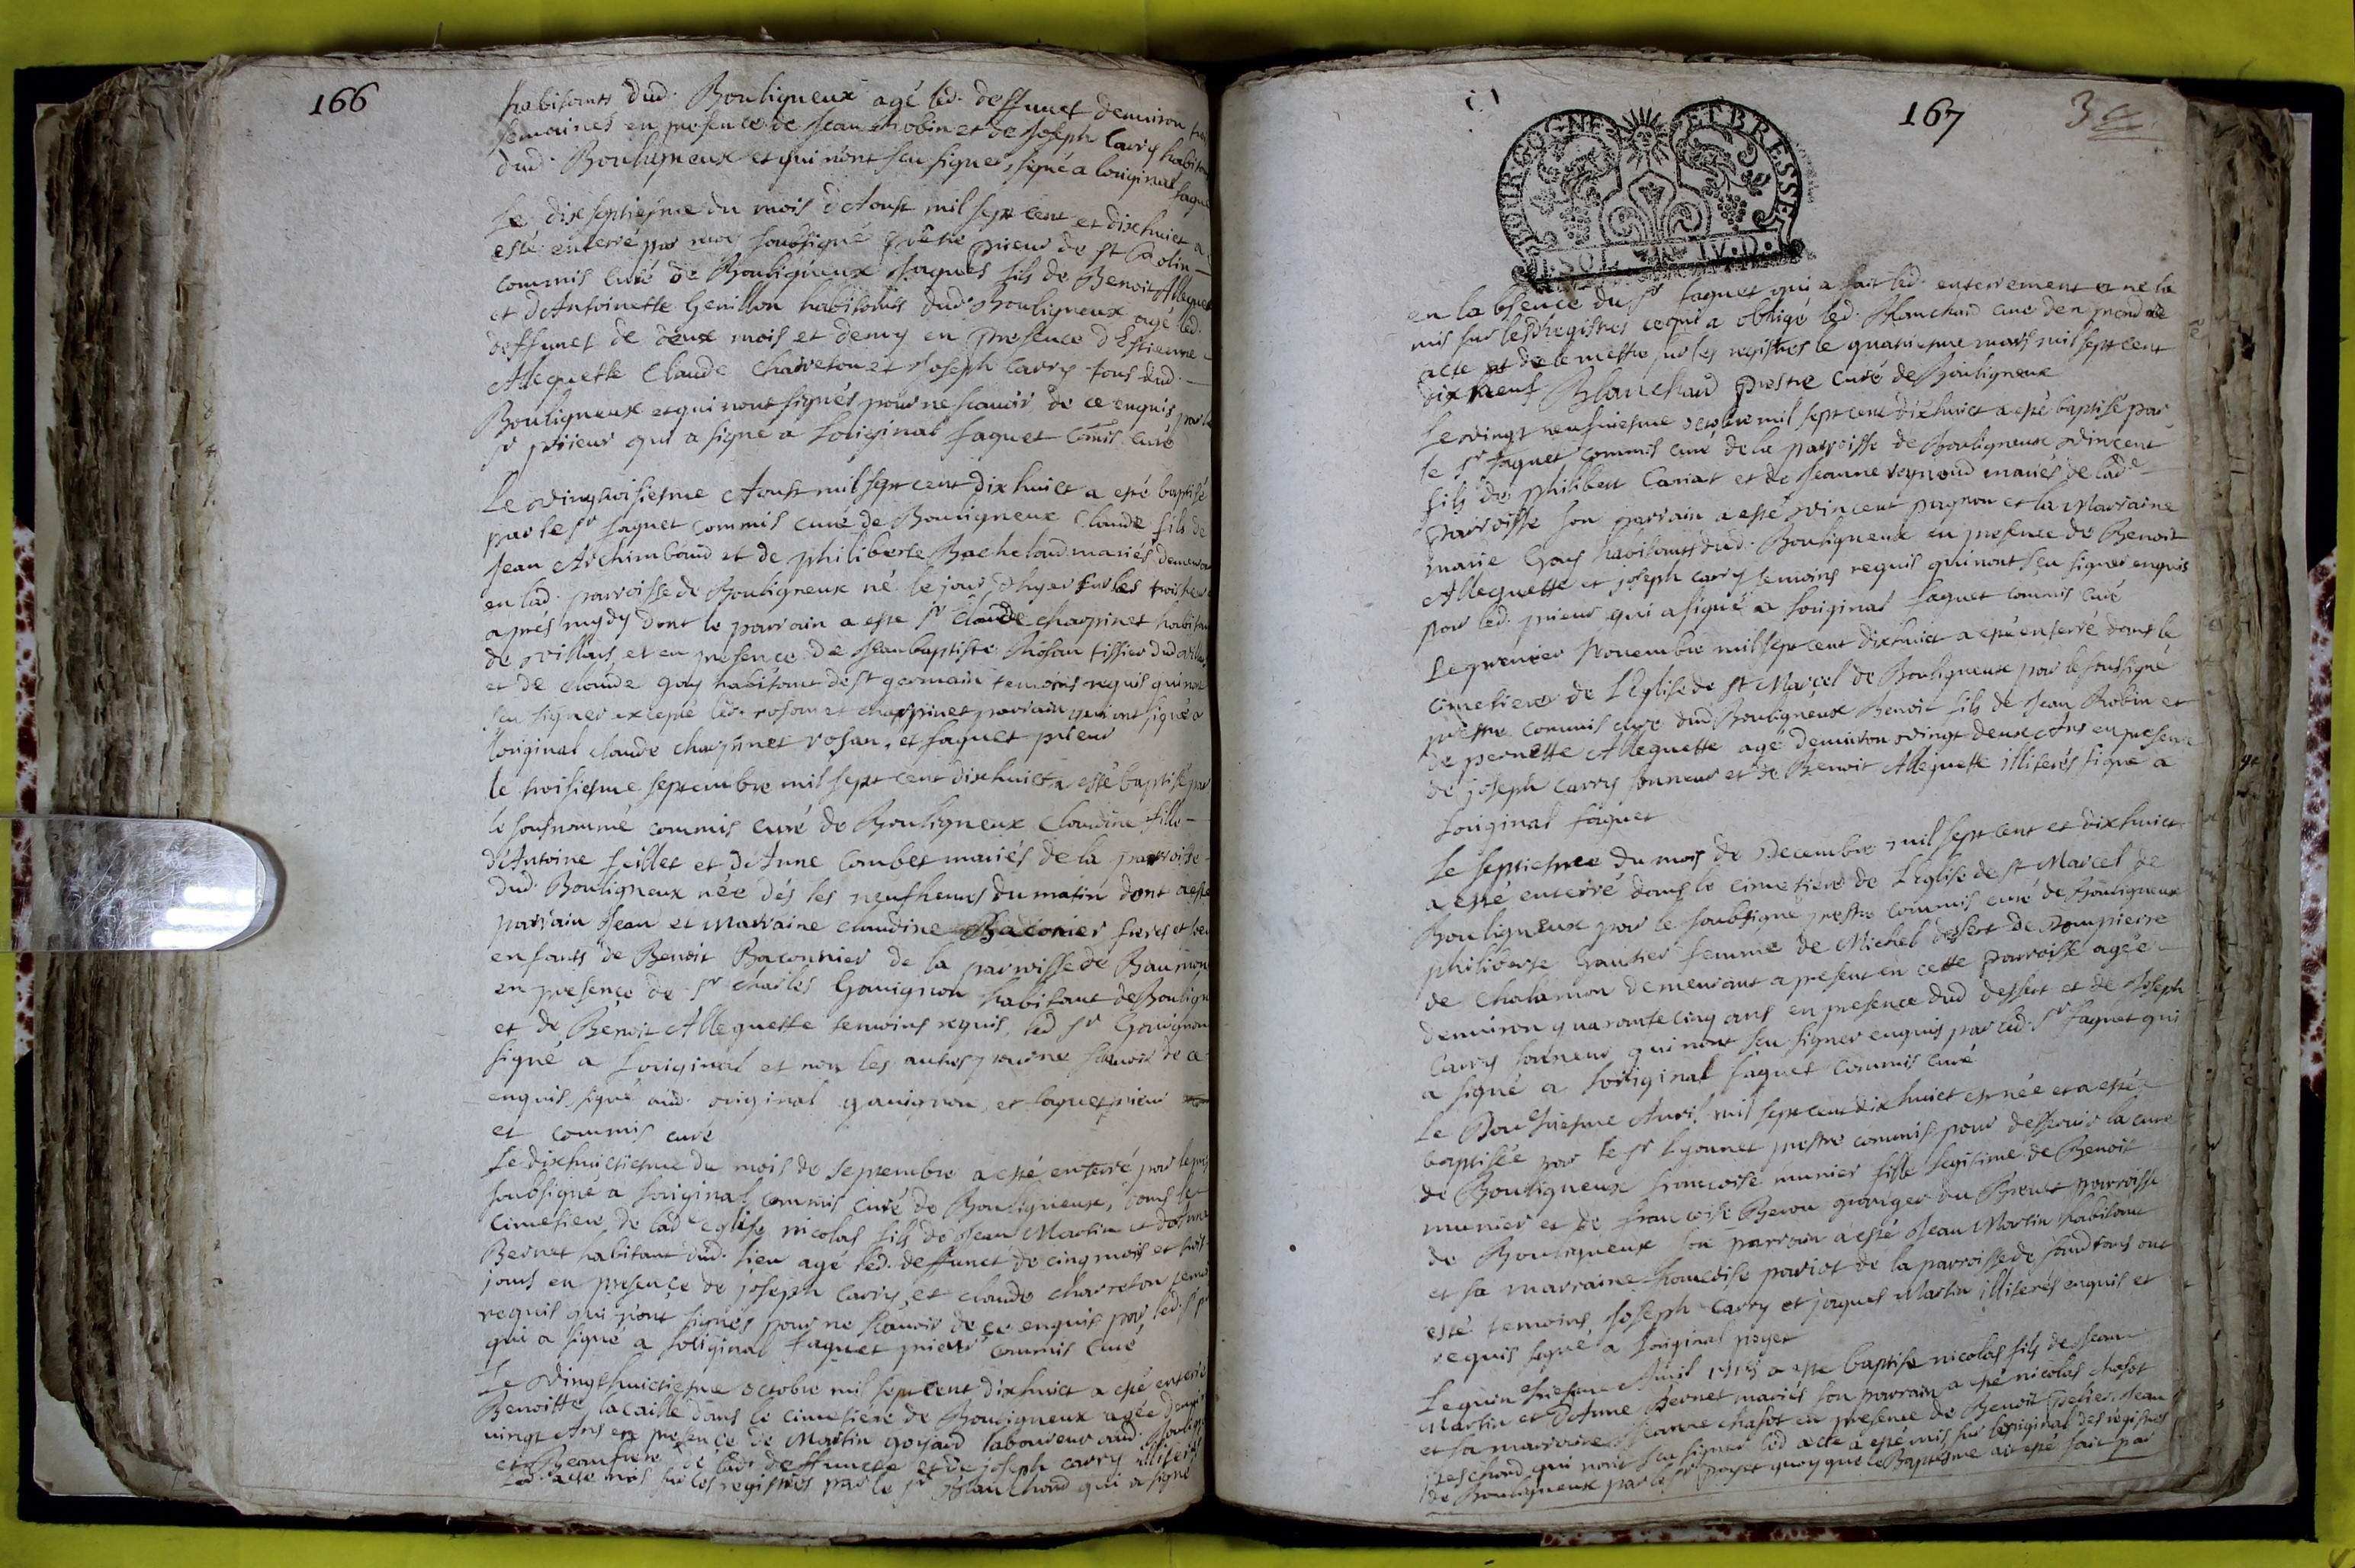 166
habitants dud. Bouligneux agé led. deffunct denuiron
semaines en presence de Jean Robin et de Joseph Carry
dud. Bouligneux et qui n'ont sçu signer, signé a loriginal faquet
Le dix septiesme du mois d'Aoust mil sept cent et dixhuict a
esté enterré par moy soubsigné prieur de st
commis curé de Bouligneux Jaques fils de Benoit Alleguette
et d'Antoinette Genillon habitants dud. Bouligneux agé led.
deffunct de deux mois et demy en presence d'Estienne
Alleguette Claude Charreton et Joseph Carry tous dud.
Bouligneux et qui n'ont signés pour ne scauoir de ce enquis par le
sr prieur qui a signé a loriginal faquet commis curé
Le vingtroisiesme Aoust mil sept cent dix huict a esté baptisé
par le sr faquet commis curé de Bouligneux Claude fils de
Jean Archimbaud et de philiberte Bacheloud mariés
en lad. parroisse de Bouligneux né le jour d'hyer sur les trois
aprés mydy dont le parrain a esté sr Claude charpinet
de villars, et en presence de Jean baptiste Rosan tissier dud villars
et de Claude goy habitant de st germain temoins requis qui n'ont
sçu signer excepté led. rosan et charpinet parrain qui ont signé a
loriginal claude charpinet rosan, et faquet prieur
le troisiesme septembre mil sept cent dixhuict a esté baptisé par
le sousnommé commis curé de Bouligneux Claudine fille
d'Antoine feillet et d'Anne Combet mariés de la parroisse
dud. Bouligneux née dés les neuf heures du matin dont a esté
parrain Jean et Marraine claudine Baconier freres et
enfants de Benoit Baconnier de la parroisse de Baumon
en presence de sr Charles Gauignon habitant de Bouligneux
et de Benoit Alleguette temoins requis, led sr Gauignon
signé a loriginal et non les autres pour ne scauoir de ce
enquis, signé aud. original gauignon, et faquet prieur
et commis curé
Le dixhuictiesme du mois de septembre a esté enterré par le
soubsigné a loriginal commis curé de Bouligneux, dans le
Cimetiere de lad.e eglise nicolas fils de Jean Martin et d'Anne
Bernet habitant dud. lieu agé led. deffunct de cinq mois et
jours en presence de joseph Carry, et claude charreton
requis qui n'ont signés pour ne scauoir de ce enquis par led. sr
qui a signé a loriginal faquet prieur commis Curé
Le vingt huictiesme octobre mil sept cent dixhuict a esté enterré
Benoitte lacaille dans le cimetiere de Bouligneux agée
vingt Ans en presence de Martin goyard laboureur aud.
et Beaufrere de lad. deffuncte et de joseph carry
led. acte mis sur les registres par le sr Blanchard qui a signé
167
3
BOURGOGNE ET BRESSE
en labsence du sr faquet qui a fait led. enterrement et ne la
mis sur lesd. registres ce qui a obligé led. Blanchard curé den prendre
acte et de le mettre sur les registres le quatriesme mars mil sept cent
dix neuf Blanchard prestre curé de Bouligneux
Le vingt neufuiesme octobre mil sept cent dixhuict a esté baptisé par
le sr faquet commis curé de la parroisse de Bouligneux vincent
fils de philibert Carriat et de Jeanne reynaud mariés de lad.e
parroisse son parrain a esté vincent pagnon et la Marraine
marie Goy habitants dud. Bouligneux en presence de Benoit
Alleguette et joseph carry temoins requis qui n'ont sçu signer enquis
par led. prieur qui a signé a loriginal faquet commis curé
Le premier Nouembre mil sept cent dixhuict a esté enterré dans le
cimetiere de L'Eglise de st Marcel de Bouligneux par le soussigné
prestre commis curé dud Bouligneux Benoit fils de Jean Robin et
de pernette Alleguette agé denuiron vingt deux Ans en presence
de joseph carry sonneur et de Benoit Alleguette illiterés signé a
loriginal faquet
Le septiesme du mois de Decembre mil sept cent et dixhuict
a esté enterré dans le cimetiere de L'Eglise de st Marcel de
Bouligneux par le soubsigné prestre commis curé de Bouligneux
philiberte Gautier femme de Michel dessert de Dompierre
de Chalamon demeurant a present en cette parroisse agée
denuiron quarante cinq ans en presence dud dessert et de Joseph
Carry sonneur qui n'ont sçu signer enquis par led. sr faquet qui
a signé a loriginal faquet Commis curé
Le Douziesme Auril mil sept cent dix huict est née et a esté
baptisée par le sr Lyonnet prestre commis pour desseruir la cure
de Bouligneux francoise munier fille legitime de Benoit
munier et de francoise Beron granger du Breuil parroisse
de Bouligneux son parrain a esté Jean Martin habitant
et sa marraine francoise pariot de la parroisse de sandrans ont
esté temoins Joseph Carry et jaques Martin illiterés enquis et
requis signé a loriginal poyet
Le quinziesme Auril 1718 a esté baptisé nicolas fils de Jean
Martin et d'Anne Bernet mariés son parrain a esté nicolas chasot
et sa marraine Jeanne chasot en presence de Benoit Jean
qui n'ont sçu signer led acte a esté mis sur loriginal des registres
de Bouligneux par le sr poyet quoy que le Baptesme ait esté fait par